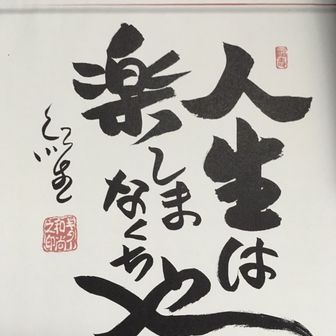 人生は
楽しまなくちゃ